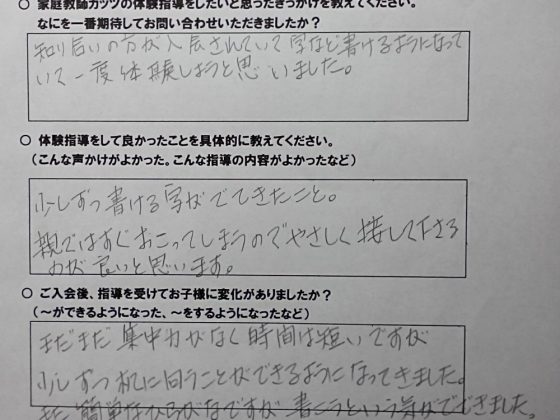 ○ 家庭教師ガッツの体験指導をしたいと思ったきっかけを教えてください。
なにを一番期待してお問い合わせいただきましたか？
知り合いの方が入会されていて字など書けるようになって
いて一度体験しようと思いました。
○ 体験指導をして良かったことを具体的に教えてください。
（こんな声かけがよかった。こんな指導の内容がよかったなど）
少しずつ書ける字がでてきたこと。
親ではすぐおこってしまうのでやさしく接して下さる
のが良いと思います。
○ ご入会後、指導を受けてお子様に変化がありましたか？
（〜ができるようになった、〜をするようになったなど）
まだまだ集中力がなく時間は短いですが
少しずつ机に向うことができるようになってきました。
まだ簡単なひらがなですが書こうという気がでてきました。